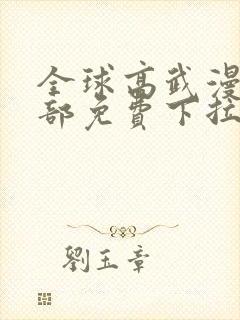 全球高武漫
部免費下拉
劉玉章